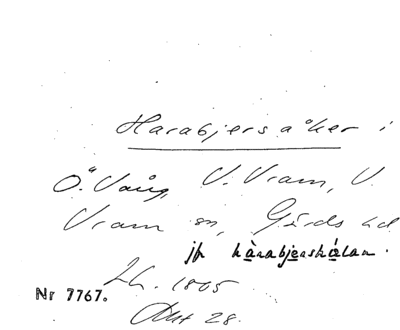 Harabjersåker i
Ö. Vång, V. Vram, V.
Vram sn, Gärds hd
jfr hàrabjershálan.
Lh. 1805
Nr 7767.
Akt 28.